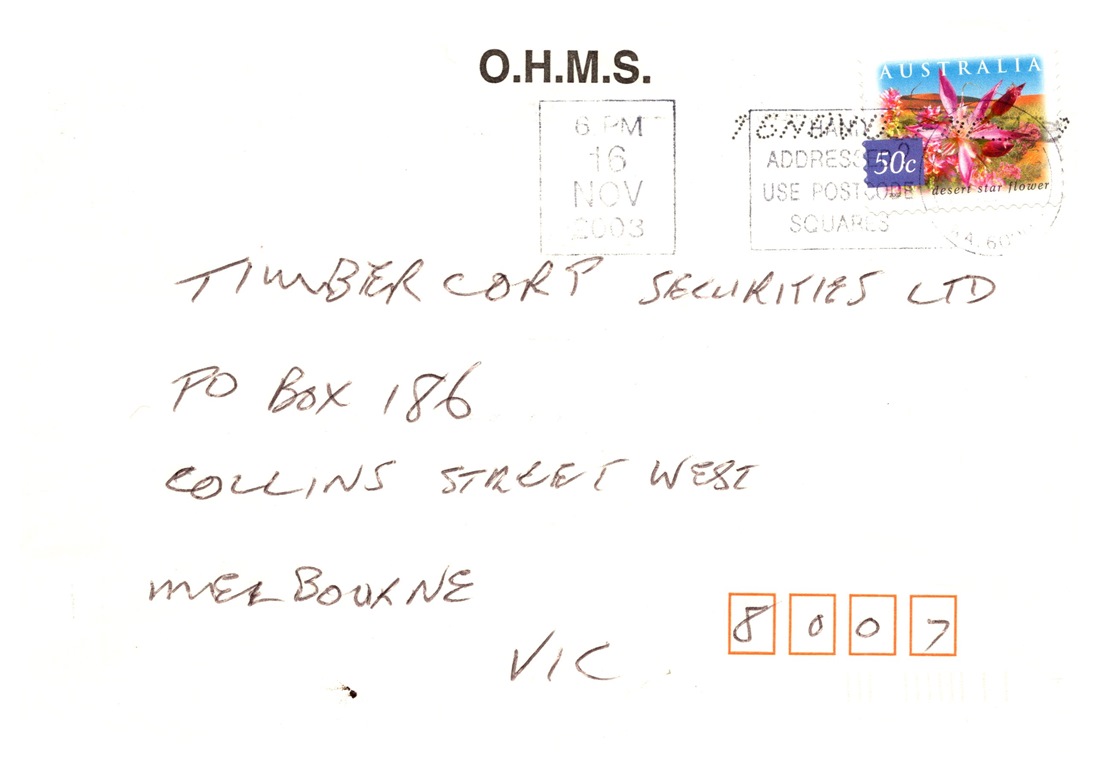 O.H.M.S.
AUSTRALIA
50c
desert star flower
6 PM
16
NOV
2003
ADDRESSED?
USE POSTCODE
SQUARES
TIMBERCORP SECURITIES LTD
PO BOX 186
COLLINS STREET WEST
MELBOURNE
VIC
8007